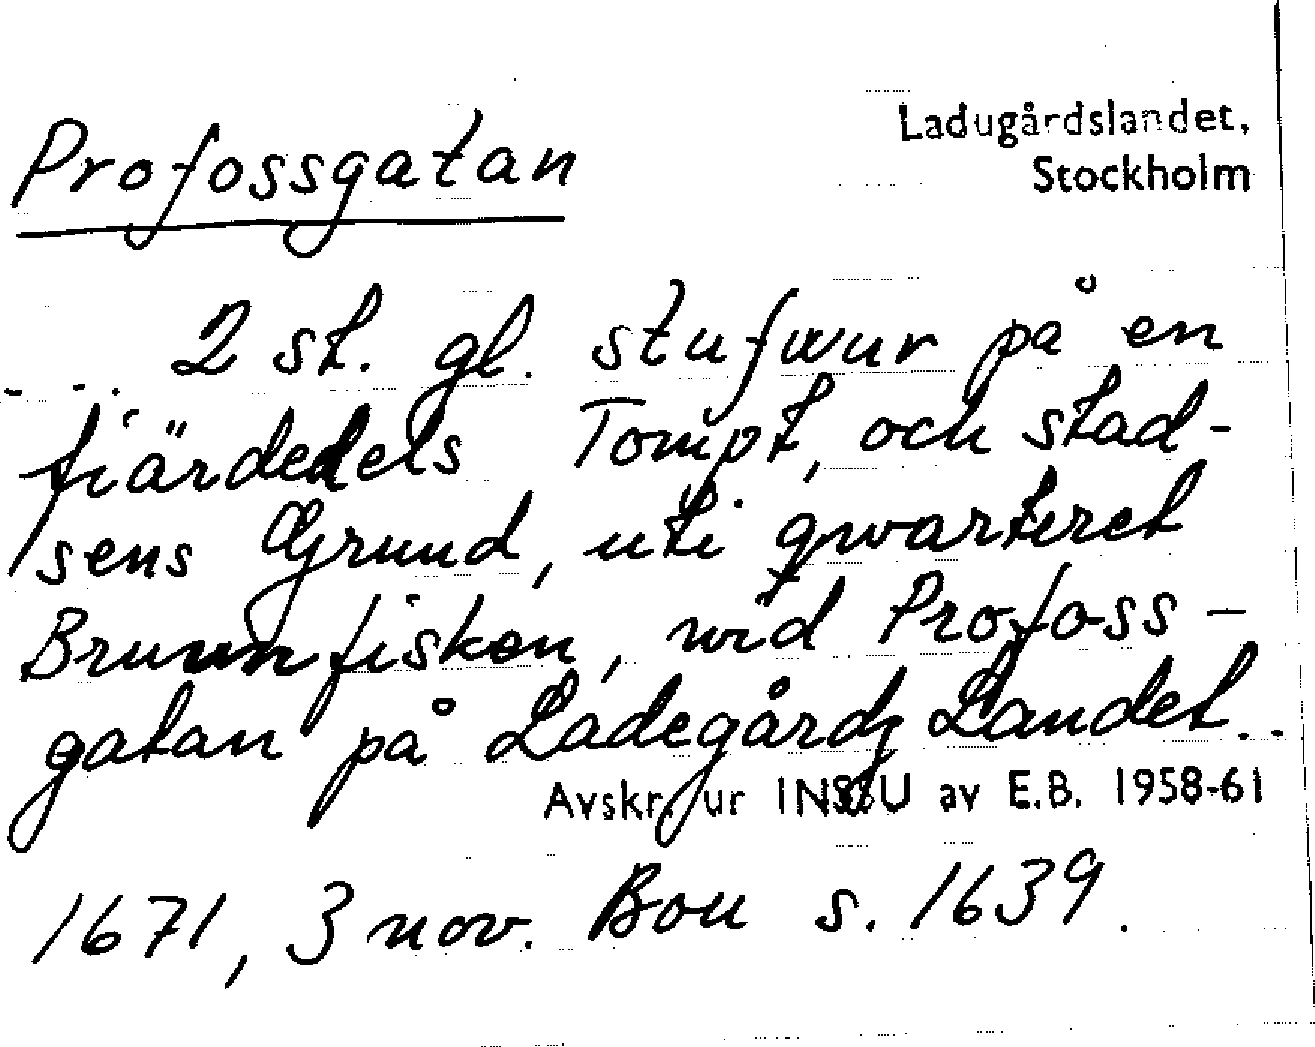 Profossgatan
Ladugårdslandet,
Stockholm
... 2 st. gl. stufwur på en
fiärdedels Tompt, och stad-
sens Grund, uti qwarteret
Brunnfisken, wid Profoss-
gatan på Ladegårdz Landet..
Avskr. ur INSBU av E.B. 1958-61
1671, 3 nov. Bou s. 1639.